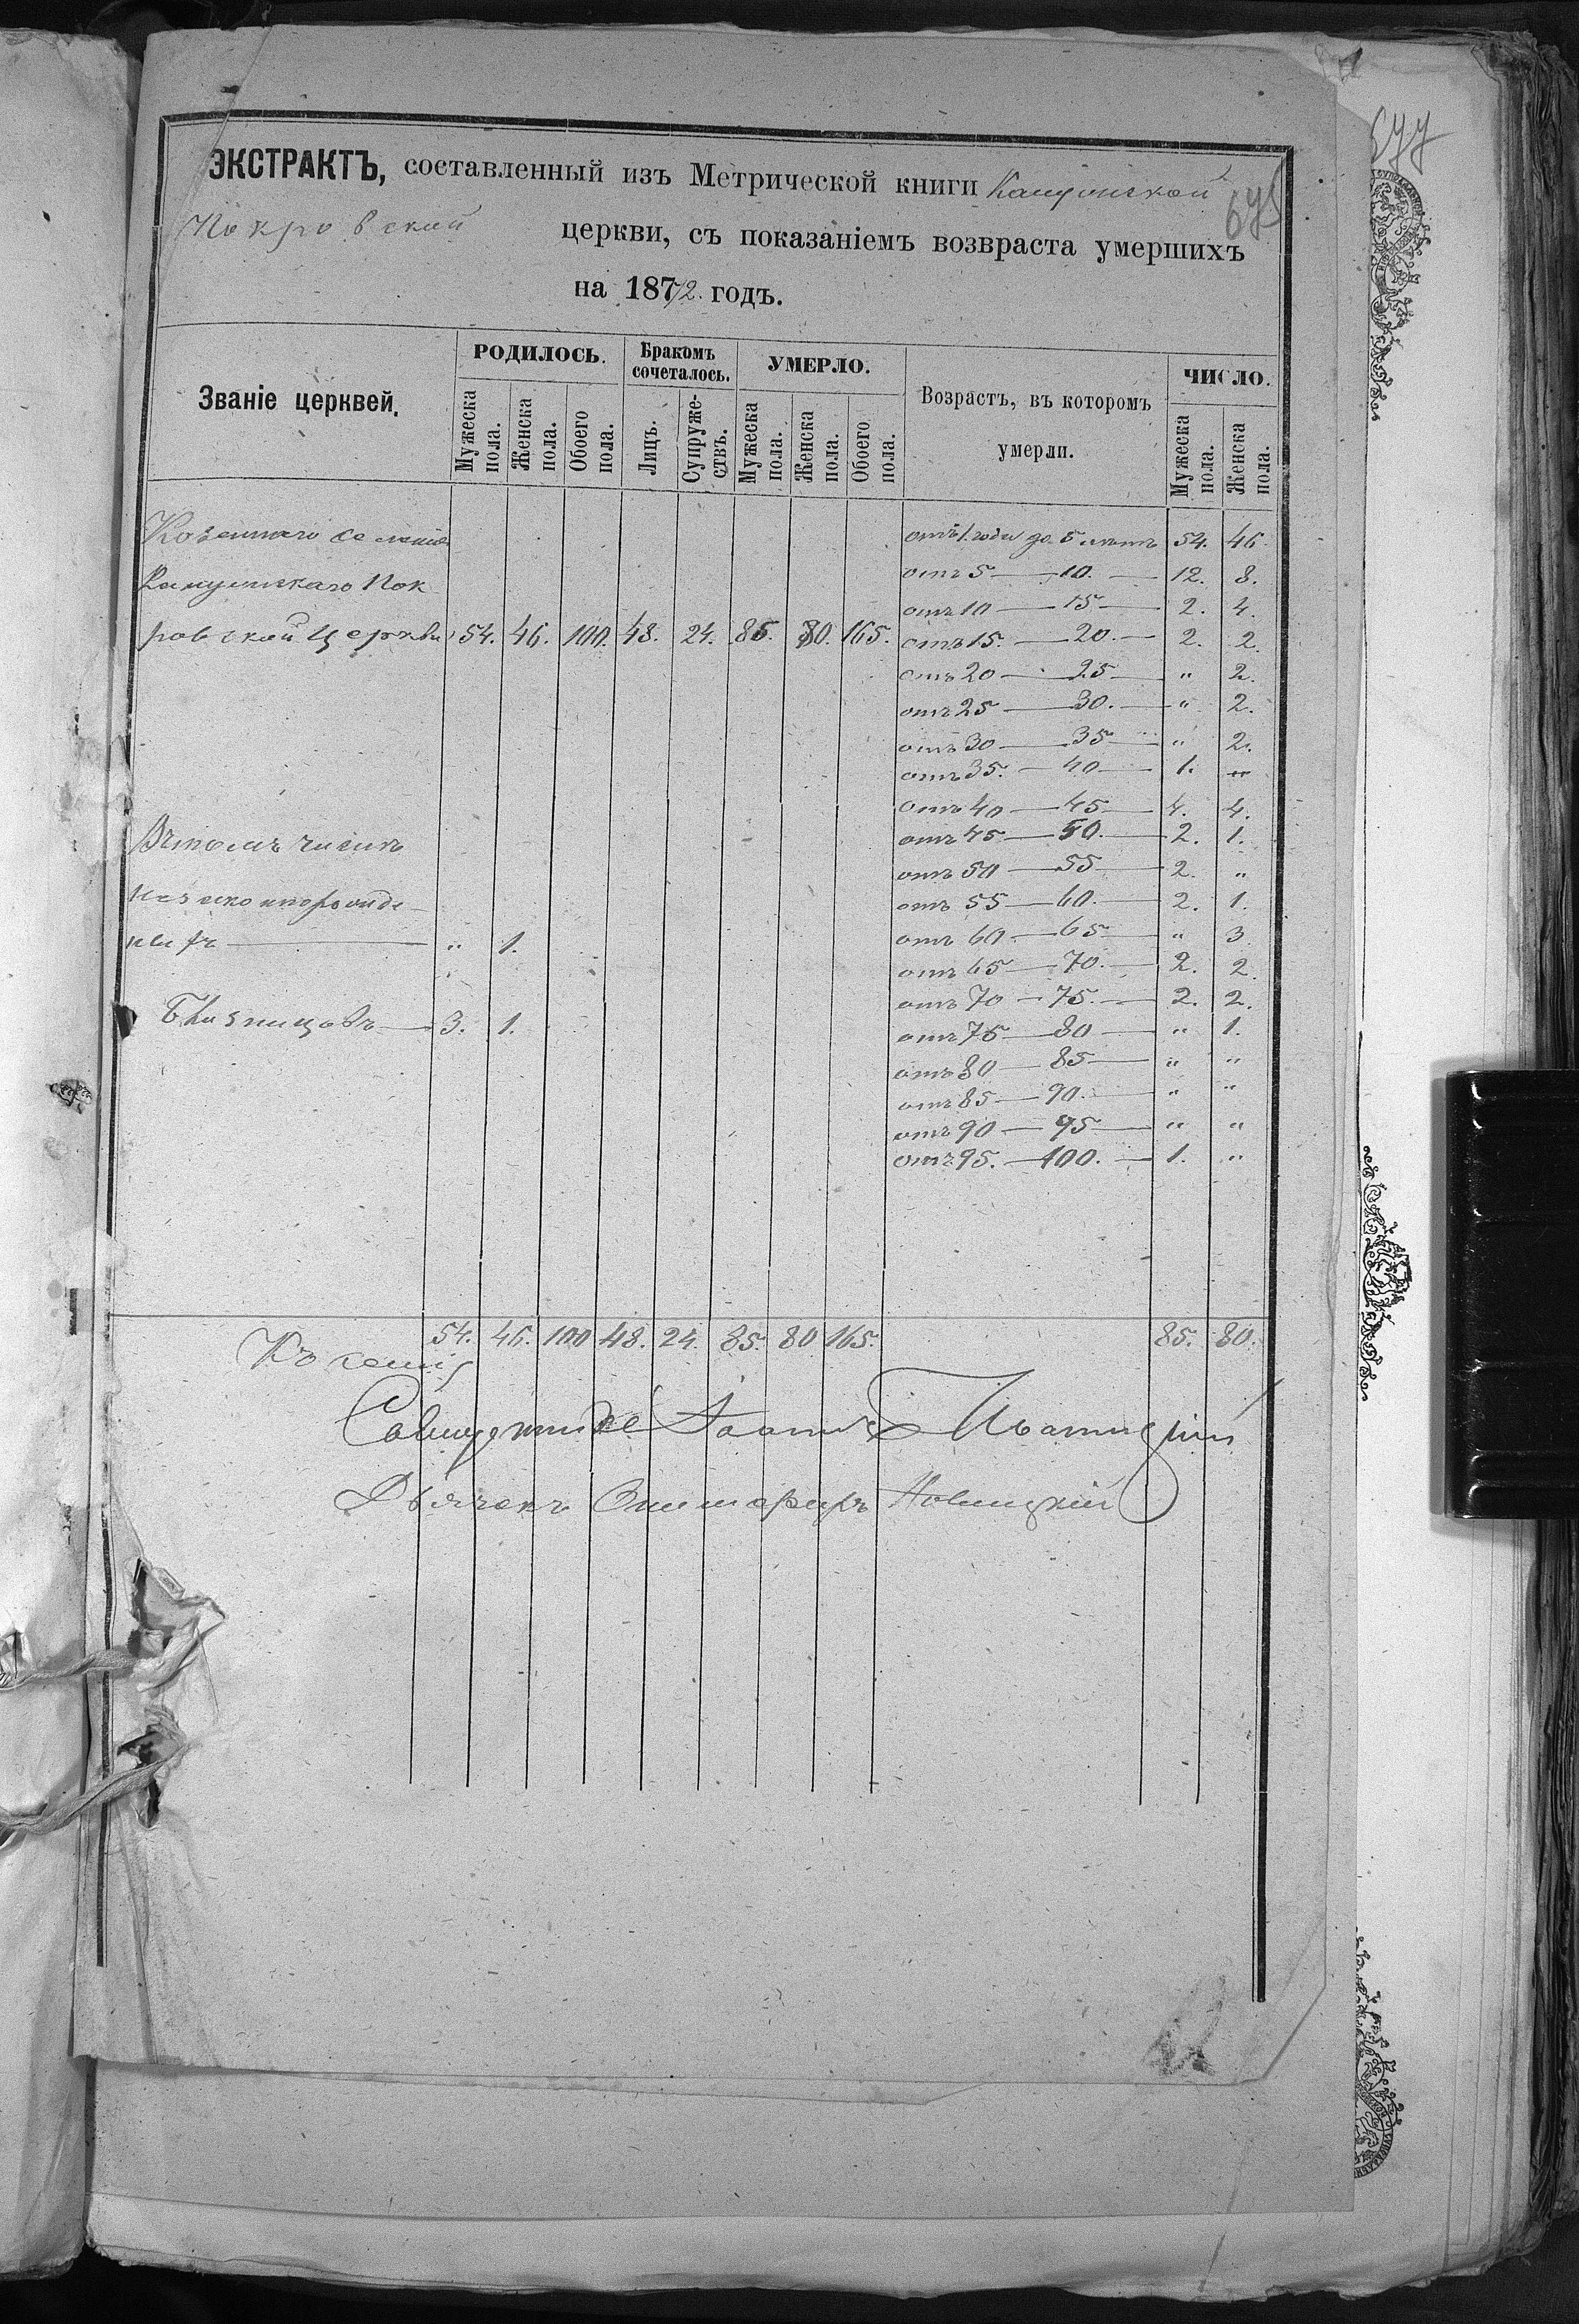 677
675
ЭКСТРАКТЪ, составленный изъ Метрической книги
Покровской церкви, съ показаніемъ возвраста умершихъ
на 1872. годъ.
Званіе церквей.
РОДИЛОСЬ.
Бракомъ сочеталось.
УМЕРЛО.
Возрастъ, въ которомъ умерли.
ЧИСЛО.
Мужеска пола.
Женска пола.
Обоего пола.
Лицъ.
Супружествъ.
Мужеска пола.
Женска пола.
Обоего пола.
Мужеска пола.
Женска пола.
Казеннаго селенія
Пок
ровской Церкви 54. 46. 100. 48. 24. 85. 80. 165.
отъ 1. года до 5 лѣтъ 54. 46.
отъ 5 — 10. — 12. 8.
отъ 10 — 15 — 2. 4.
отъ 15. — 20. — 2. 2.
отъ 20 — 25 — " 2.
отъ 25 — 30. — " 2.
отъ 30 — 35 — " 2.
отъ 35. — 40 — 1. "
отъ 40 — 45 — 4. 4.
отъ 45 — 50. — 2. 1.
отъ 50 — 55 — 2. "
отъ 55 — 60. — 2. 1.
отъ 60. — 65 — " 3
отъ 65 — 70. — 2. 2.
отъ 70 — 75. — 2. 2.
отъ 75 — 80 — " 1.
отъ 80 — 85 — " "
отъ 85 — 90. — " "
отъ 90 — 95 — " "
отъ 95. — 100. — 1. "
Въ томъ числѣ
незаконнорожде
ныхъ — " 1.
Близнецовъ — 3. 1.
54. 46. 100 48. 24. 85. 80 165. 85. 80.
Къ сему
Священникъ Іоаннъ
Дьячекъ Новицкій